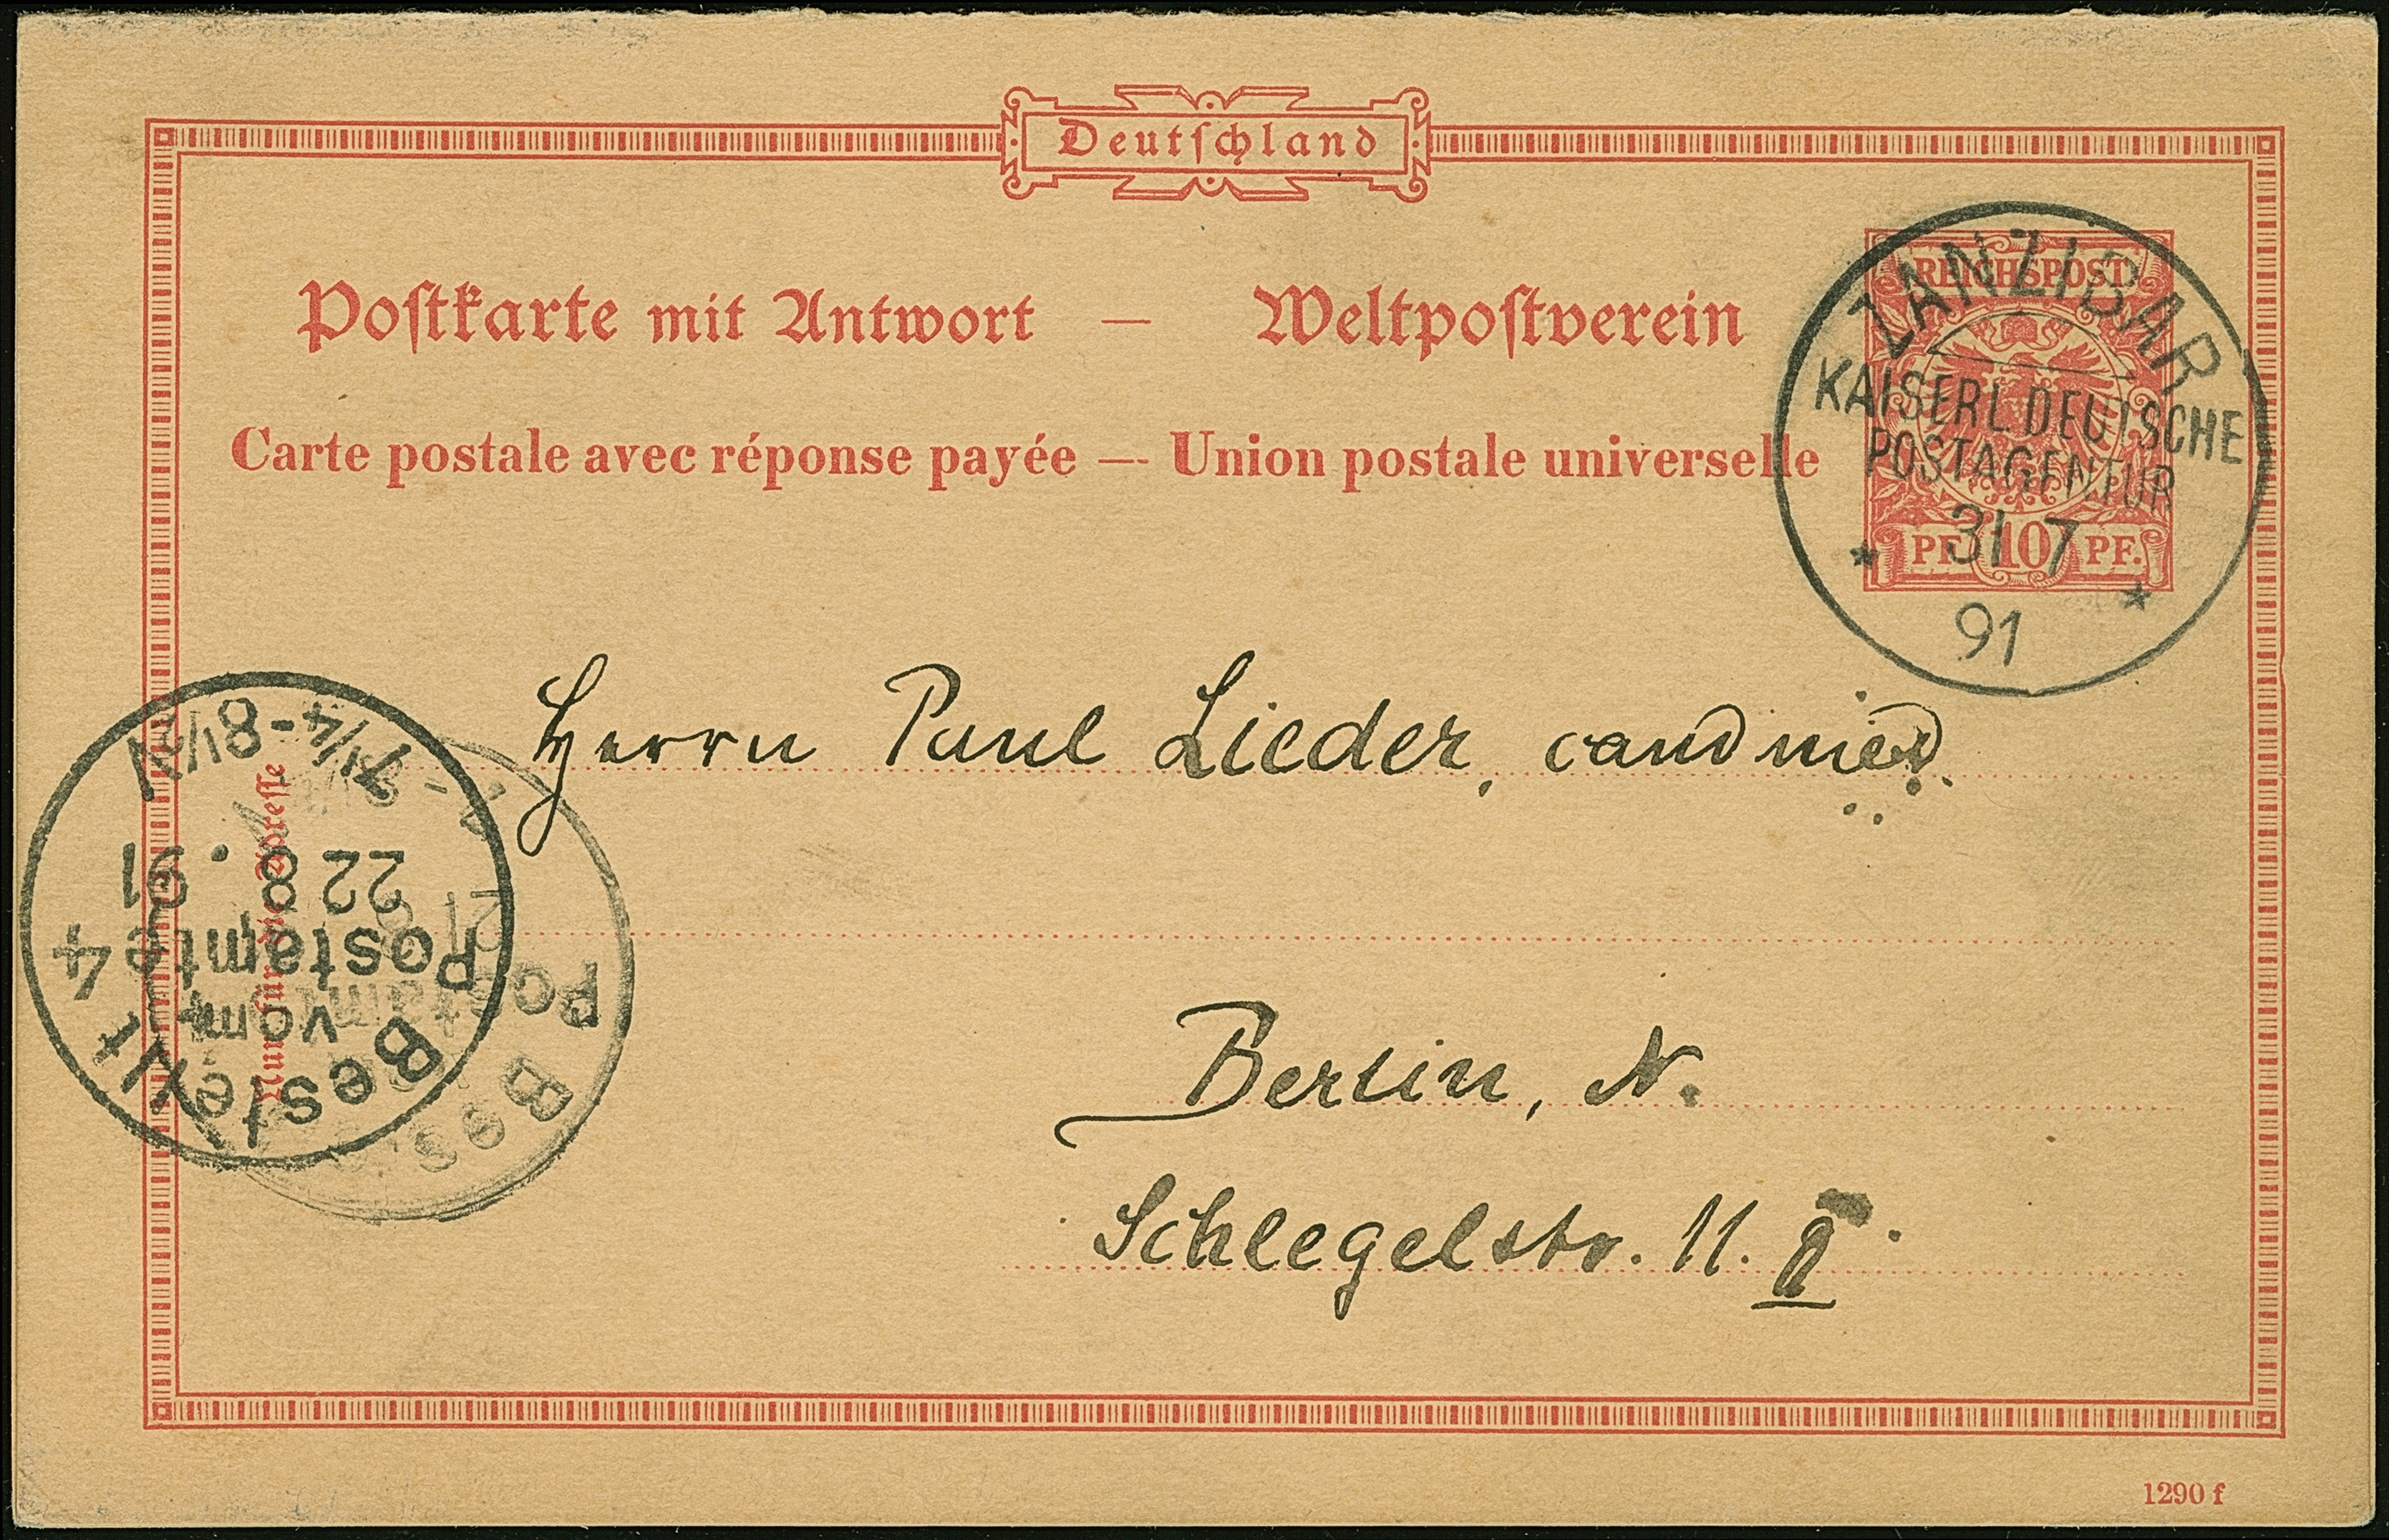 Deutſchland
Poſtkarte mit Antwort — Weltpoſtverein
Carte postale avec réponse payée — Union postale universelle
REICHSPOST
PF. 10 PF.
ZANZIBAR
KAISERL DEUTSCHE
POSTAGENTUR
* 31 7 *
91
Herrn Paul Lieder, cand med.
Berlin, N.
Schlegelstr. 11. II.
Nur für die Adreſſe
Bestellt
vom
Postamte 4
22 8. 91
7¼-8½V
1290 f